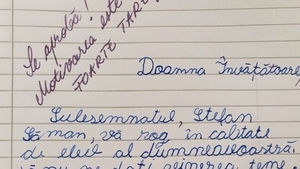 Se aprobă!
Motivarea este
FOARTE TARE
Doamna Învățătoare,
Subsemnatul, Ștefan
vă rog în calitate
de elev al dumneavoastră
să nu ne dați
teme